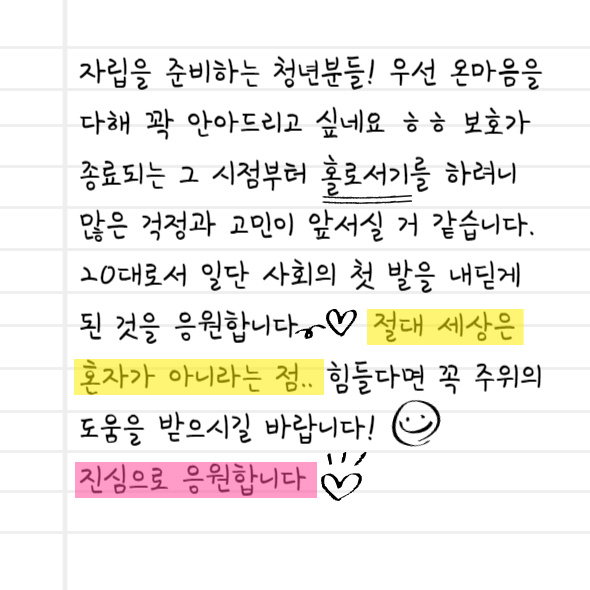 자립을 준비하는 청년분들! 우선 온마음을
다해 꽉 안아드리고 싶네요 ㅎㅎ 보호가
종료되는 그 시점부터 홀로서기를 하려니
많은 걱정과 고민이 앞서실 거 같습니다.
20대로서 일단 사회의 첫 발을 내딛게
된 것을 응원합니다~♡ 절대 세상은
혼자가 아니라는 점.. 힘들다면 꼭 주위의
도움을 받으시길 바랍니다!
진심으로 응원합니다